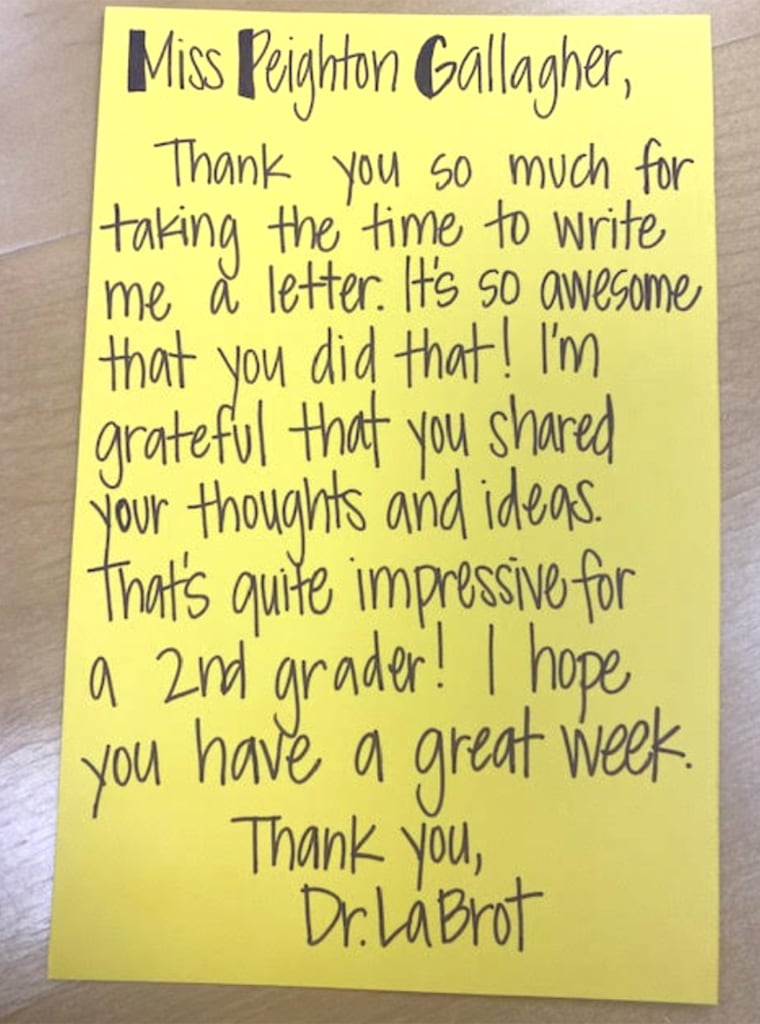 Miss Peighton Gallagher,
Thank you so much for
taking the time to write
me a letter. It's so awesome
that you did that! I'm
grateful that you shared
your thoughts and ideas.
That's quite impressive for
a 2nd grader! I hope
you have a great week.
Thank you,
Dr. LaBrot